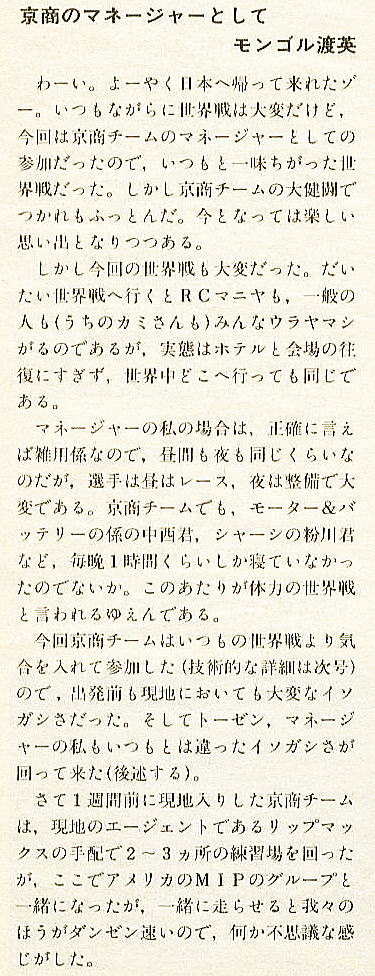 京商のマネージャーとして
モンゴル渡英
わーい。よーやく日本へ帰って来れたゾ
ー。いつもながらに世界戦は大変だけど，
今回は京商チームのマネージャーとしての
参加だったので，いつもと一味ちがった世
界戦だった。しかし京商チームの大健闘で
つかれもふっとんだ。今となっては楽しい
思い出となりつつある。
しかし今回の世界戦も大変だった。だい
たい世界戦へ行くとＲＣマニヤも，一般の
人も(うちのカミさんも)みんなウラヤマシ
がるのであるが，実態はホテルと会場の往
復にすぎず，世界中どこへ行っても同じで
ある。
マネージャーの私の場合は，正確に言え
ば雑用係なので，昼間も夜も同じくらいな
のだが，選手は昼はレース，夜は整備で大
変である。京商チームでも，モーター&バ
ッテリーの係の中西君，シャーシの粉川君
など，毎晩１時間くらいしか寝ていなかっ
たのでないか。このあたりが体力の世界戦
と言われるゆえんである。
今回京商チームはいつもの世界戦より気
合を入れて参加した(技術的な詳細は次号)
ので，出発前も現地においても大変なイソ
ガシさだった。そしてトーゼン，マネージ
ャーの私もいつもとは違ったイソガシさが
回って来た(後述する)。
さて１週間前に現地入りした京商チーム
は，現地のエージェントであるリップマッ
クスの手配で２〜３ヵ所の練習場を回った
が，ここでアメリカのＭＩＰのグループと
一緒になったが，一緒に走らせると我々の
ほうがダンゼン速いので，何か不思議な感
じがした。